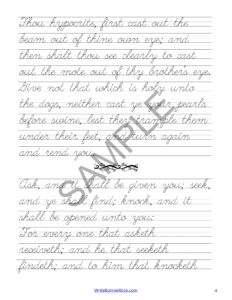 Thou hypocrite, first cast out the
beam out of thine own eye; and
then shalt thou see clearly to cast
out the mote out of thy brothers eye.
Give not that which is holy unto
the dogs, neither cast ye your pearls
before swine, lest they trample them
under their feet, and turn again
and rend you.
SAMPLE
Ask, and it shall be given you; seek,
and ye shall find; knock, and it
shall be opened unto you:
For every one that asketh
receiveth; and he that seeketh
findeth; and to him that knocketh
WriteBonnieRose.com
4